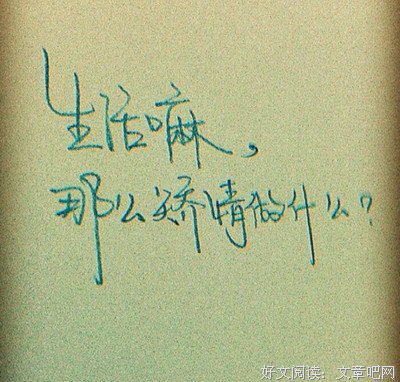 生活嘛，
那么矫情做什么？
好文阅读：文章吧网